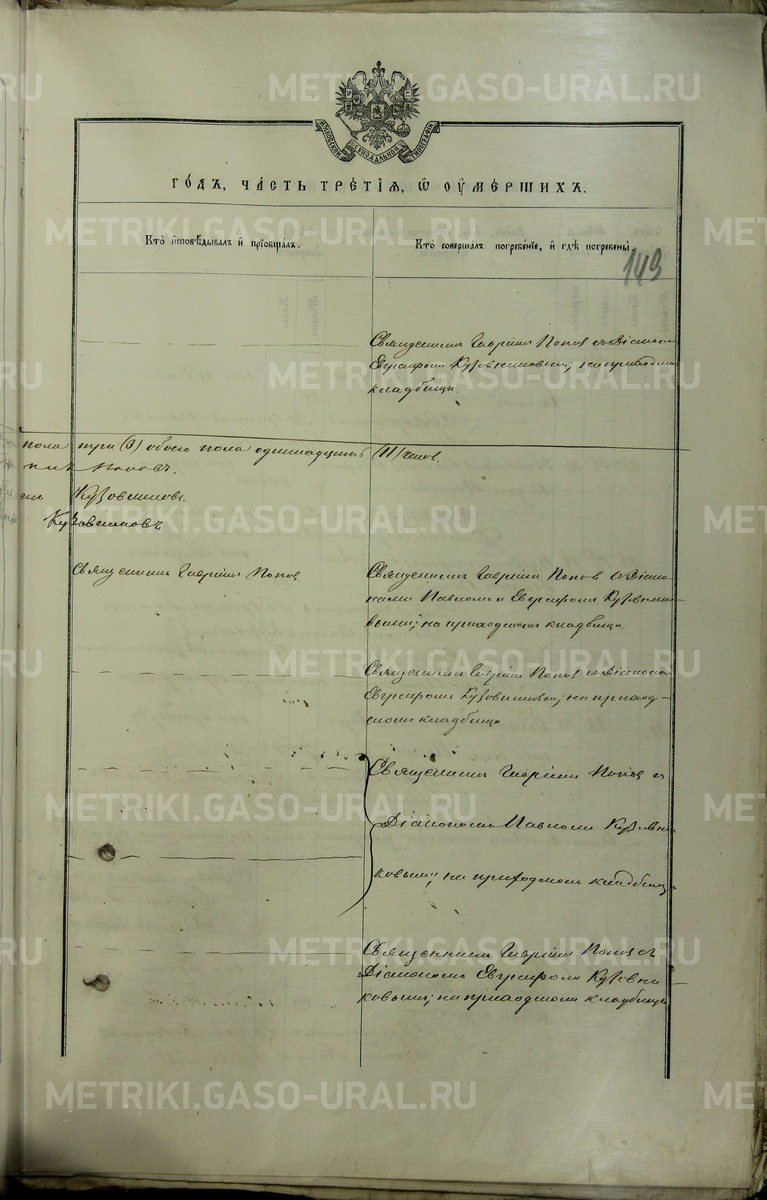 METRIKI.GASO-URAL.RU
МОСКОВСКОЙ СѴНОДАЛЬНОЙ ТИПОГРАФІИ
ГО́ДЪ, ЧА́СТЬ ТРЕ́ТІѦ, Ѡ҆ ОУ҆МЕ́РШИХЪ.
Кто̀ и҆сповѣ́дывалъ и҆ прїѻбща́лъ.
Кто̀ соверша́лъ погребе́нїе, и҆ гдѣ̀ погребены̀.
149
Священникъ Гавріилъ Поповъ съ Діакономъ
Евграфомъ Кузовниковымъ; на приходскомъ
кладбищѣ.
пола три (3) обоего пола одиннадцать (11) челов.
Поповъ.
Кузовниковъ.
Кузовниковъ
Священникъ Гавріилъ Поповъ
Священникъ Гавріилъ Поповъ съ Діако-
нами Павломъ и Евграфомъ Кузовнико-
выми; на приходскомъ кладбищѣ.
Священникъ Гавріилъ Поповъ съ Діакономъ
Евграфомъ Кузовниковымъ; на приход-
скомъ кладбищѣ
Священникъ Гавріилъ Поповъ съ
Діакономъ Павломъ Кузовни-
ковымъ; на приходскомъ кладбищѣ.
Священникъ Гавріилъ Поповъ съ
Діакономъ Евграфомъ Кузовни-
ковымъ; на приходскомъ кладбищѣ